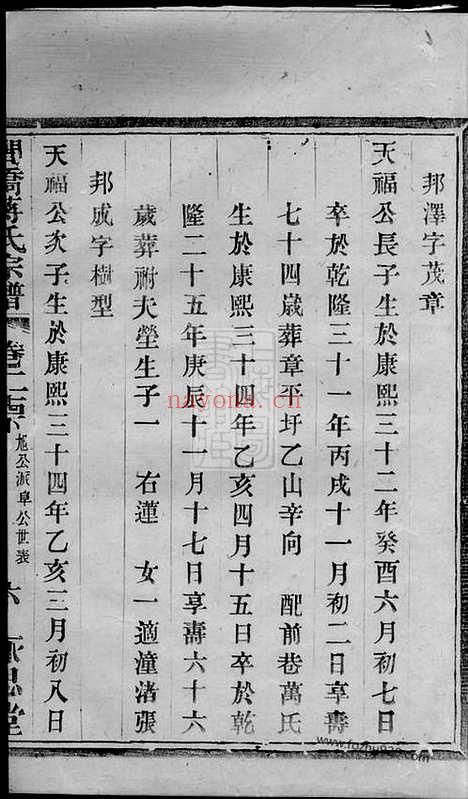 邦澤字茂章
天福公長子生於康熙三十二年癸酉六月初七日
卒於乾隆三十一年丙戌十一月初二日享壽
七十四歲葬章平圩乙山辛向　配前巷萬氏
生於康熙三十四年乙亥四月十五日卒於乾
隆二十五年庚辰十一月十七日享壽六十六
歲葬祔夫塋生子一　右蓮　女一適潼渚張
邦成字樹型
天福公次子生於康熙三十四年乙亥三月初八日
蔣氏宗譜
旭公派阜公世表
六
思堂
nayona.cn